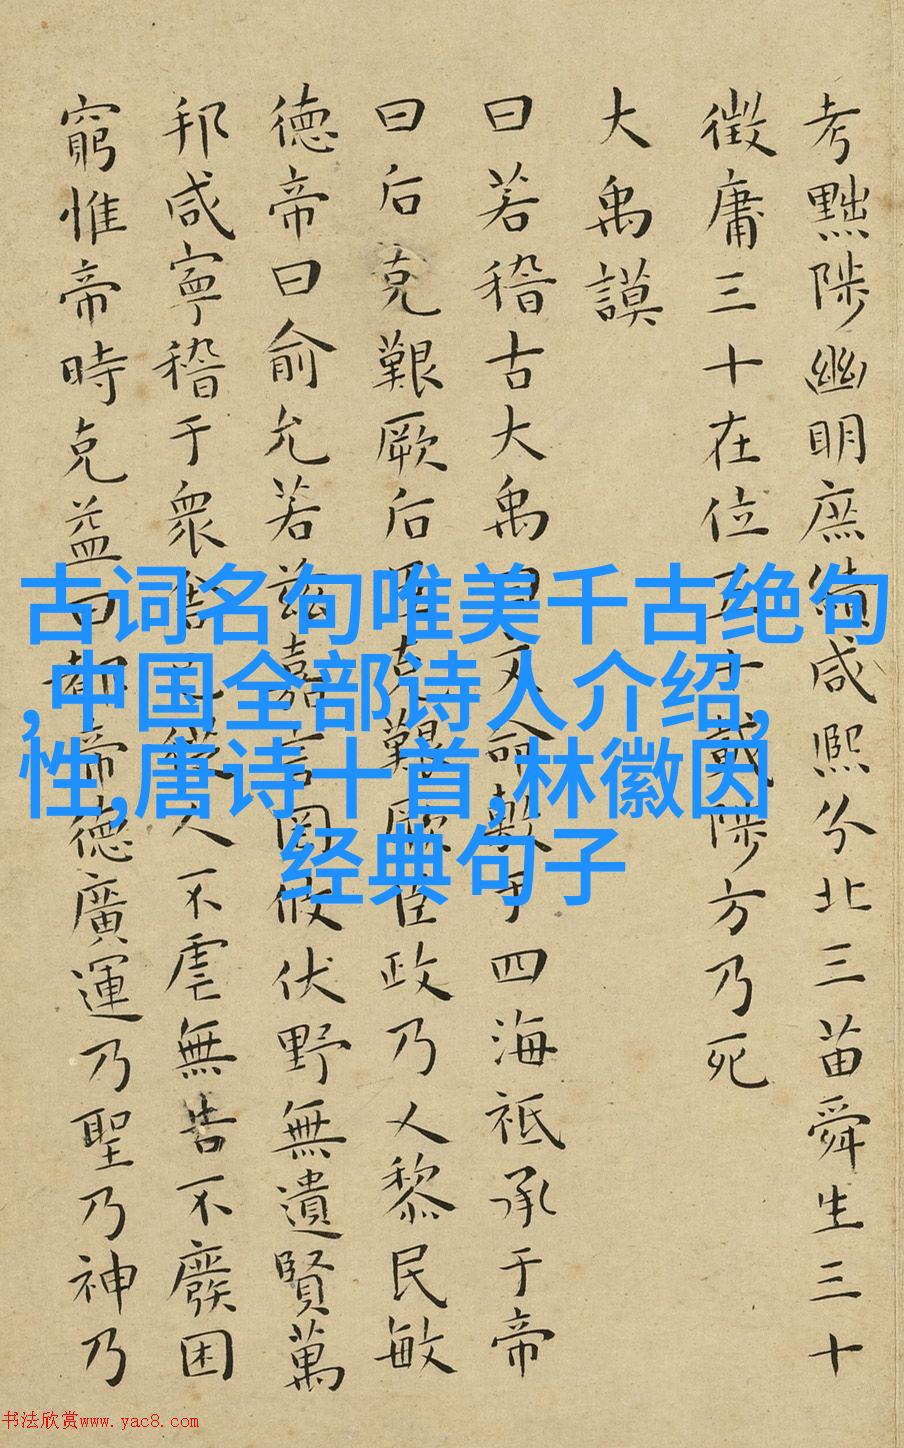 考黜陟幽明庶績咸熙分北三苗舜生三十
徵庸三十在位五十載陟方乃死
大禹謨
曰若稽古大禹曰文命敷于四海祗承于帝
曰后克艱厥后臣克艱厥臣政乃乂黎民敏
德帝曰俞允若茲嘉言罔攸伏野無遺賢萬
邦咸寧稽于眾舍己從人不虐無告不廢困
窮惟帝時克益曰都帝德廣運乃聖乃神乃
古词名句唯美千古绝句
,中国全部诗人介绍,
性,唐诗十首,林徽因
经典句子
书法欣赏www.yac8.com